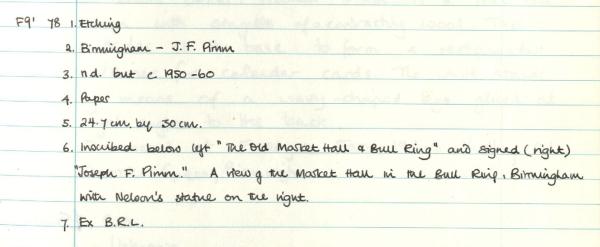 F9' 78 1. Etching
2. Birmingham - J.F. Pimm
3. n.d. but c 1950-60
4. Paper
5. 24.7 cm. by 30 cm.
6. Inscribed below left "The Old Market Hall & Bull Ring" and signed (right)
"Joseph F. Pimm." A view of the Market Hall in the Bull Ring, Birmingham
with Nelson's statue on the right.
7. Ex B.R.L.